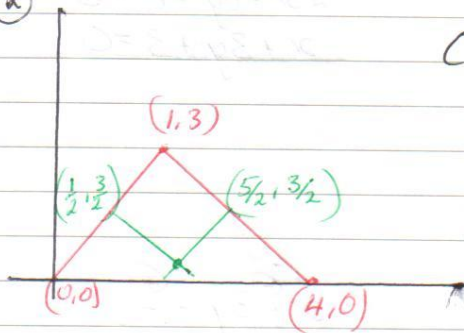 a
(1,3)
(1/2, 3/2)
(5/2, 3/2)
(0,0)
(4,0)